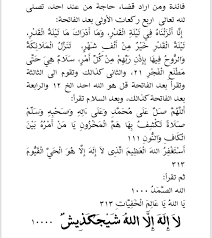 فائدة ومن أراد قضاء حاجة من عند احد، تصلى
لله تعالى اربع ركعات الأولى بعد الفاتحة:
إِنَّا أَنْزَلْنَاهُ فِي لَيْلَةِ الْقَدْرِ، وَمَا أَدْرَاكَ مَا لَيْلَةُ الْقَدْرِ،
لَيْلَةُ الْقَدْرِ خَيْرٌ مِنْ أَلْفِ شَهْرٍ، تَنَزَّلُ الْمَلَائِكَةُ
وَالرُّوحُ فِيهَا بِإِذْنِ رَبِّهِمْ مِنْ كُلِّ أَمْرٍ، سَلَامٌ هِيَ حَتَّى
مَطْلَعِ الْفَجْرِ ٢١، والثانى كذالك وتقوم الى الثالثة
وتقرأ بعد الفاتحة قل هو الله احد الخ ١٢ والرابعة
بعد الفاتحة كذالك، وبعد السلام تقرأ:
اَللَّهُمَّ صَلِّ عَلَى مُحَمَّدٍ وَعَلَى آلِهِ وَصَحْبِهِ وَسَلِّمْ
صَلَاةً تَكْشِفُ بِهَا هَمَّ الْمَحْزُونِ يَا مَنْ أَمْرُهُ بَيْنَ
الْكَافِ وَالنُّونِ ١١١
أَسْتَغْفِرُ اللهَ الْعَظِيمَ الَّذِى لَا إِلَهَ إِلَّا هُوَ الْحَيُّ الْقَيُّومُ
٣١٣
ثم تقرأ:
الله الصَّمَدُ ١٠٠٠
يَا اللهُ يَا عَالِمَ الْخَفِيَّاتِ ٣١٣
لَا إِلَهَ إِلَّا اللهُ ١٠٠٠٠